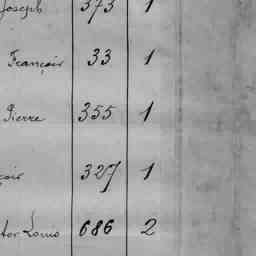 Joseph 373 1
François 33 1
Pierre 355 1
çois 327 1
tor Louis 686 2